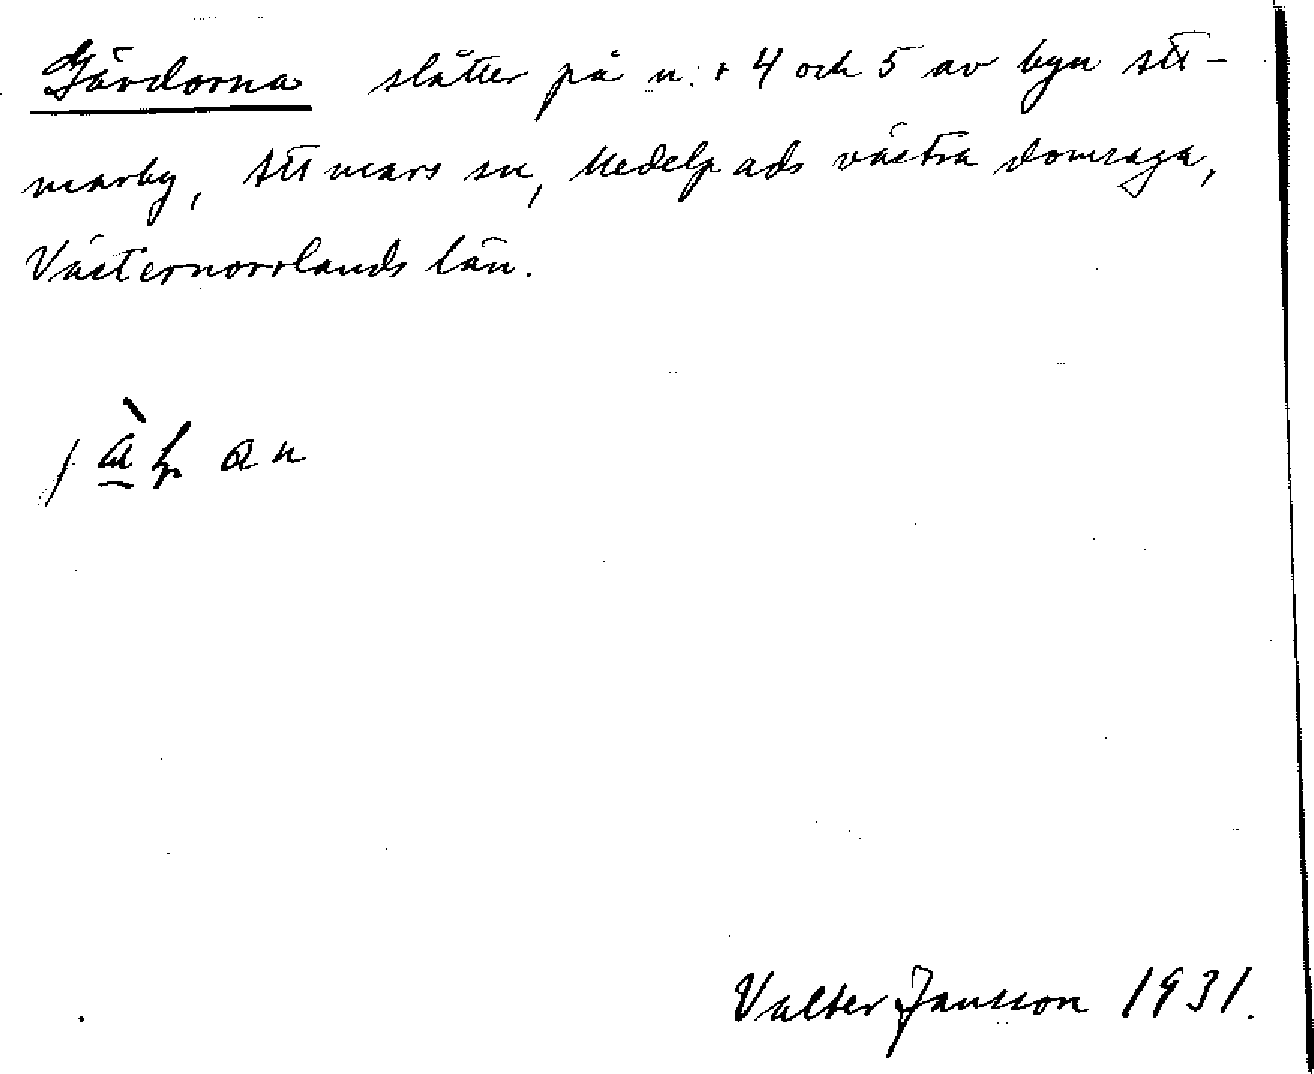 Gärdorna slåtter på n:r 4 och 5 av byn Att-
marby, Attmars sn, Medelpads västra domsaga,
Västernorrlands län.
Valter Jansson 1931.